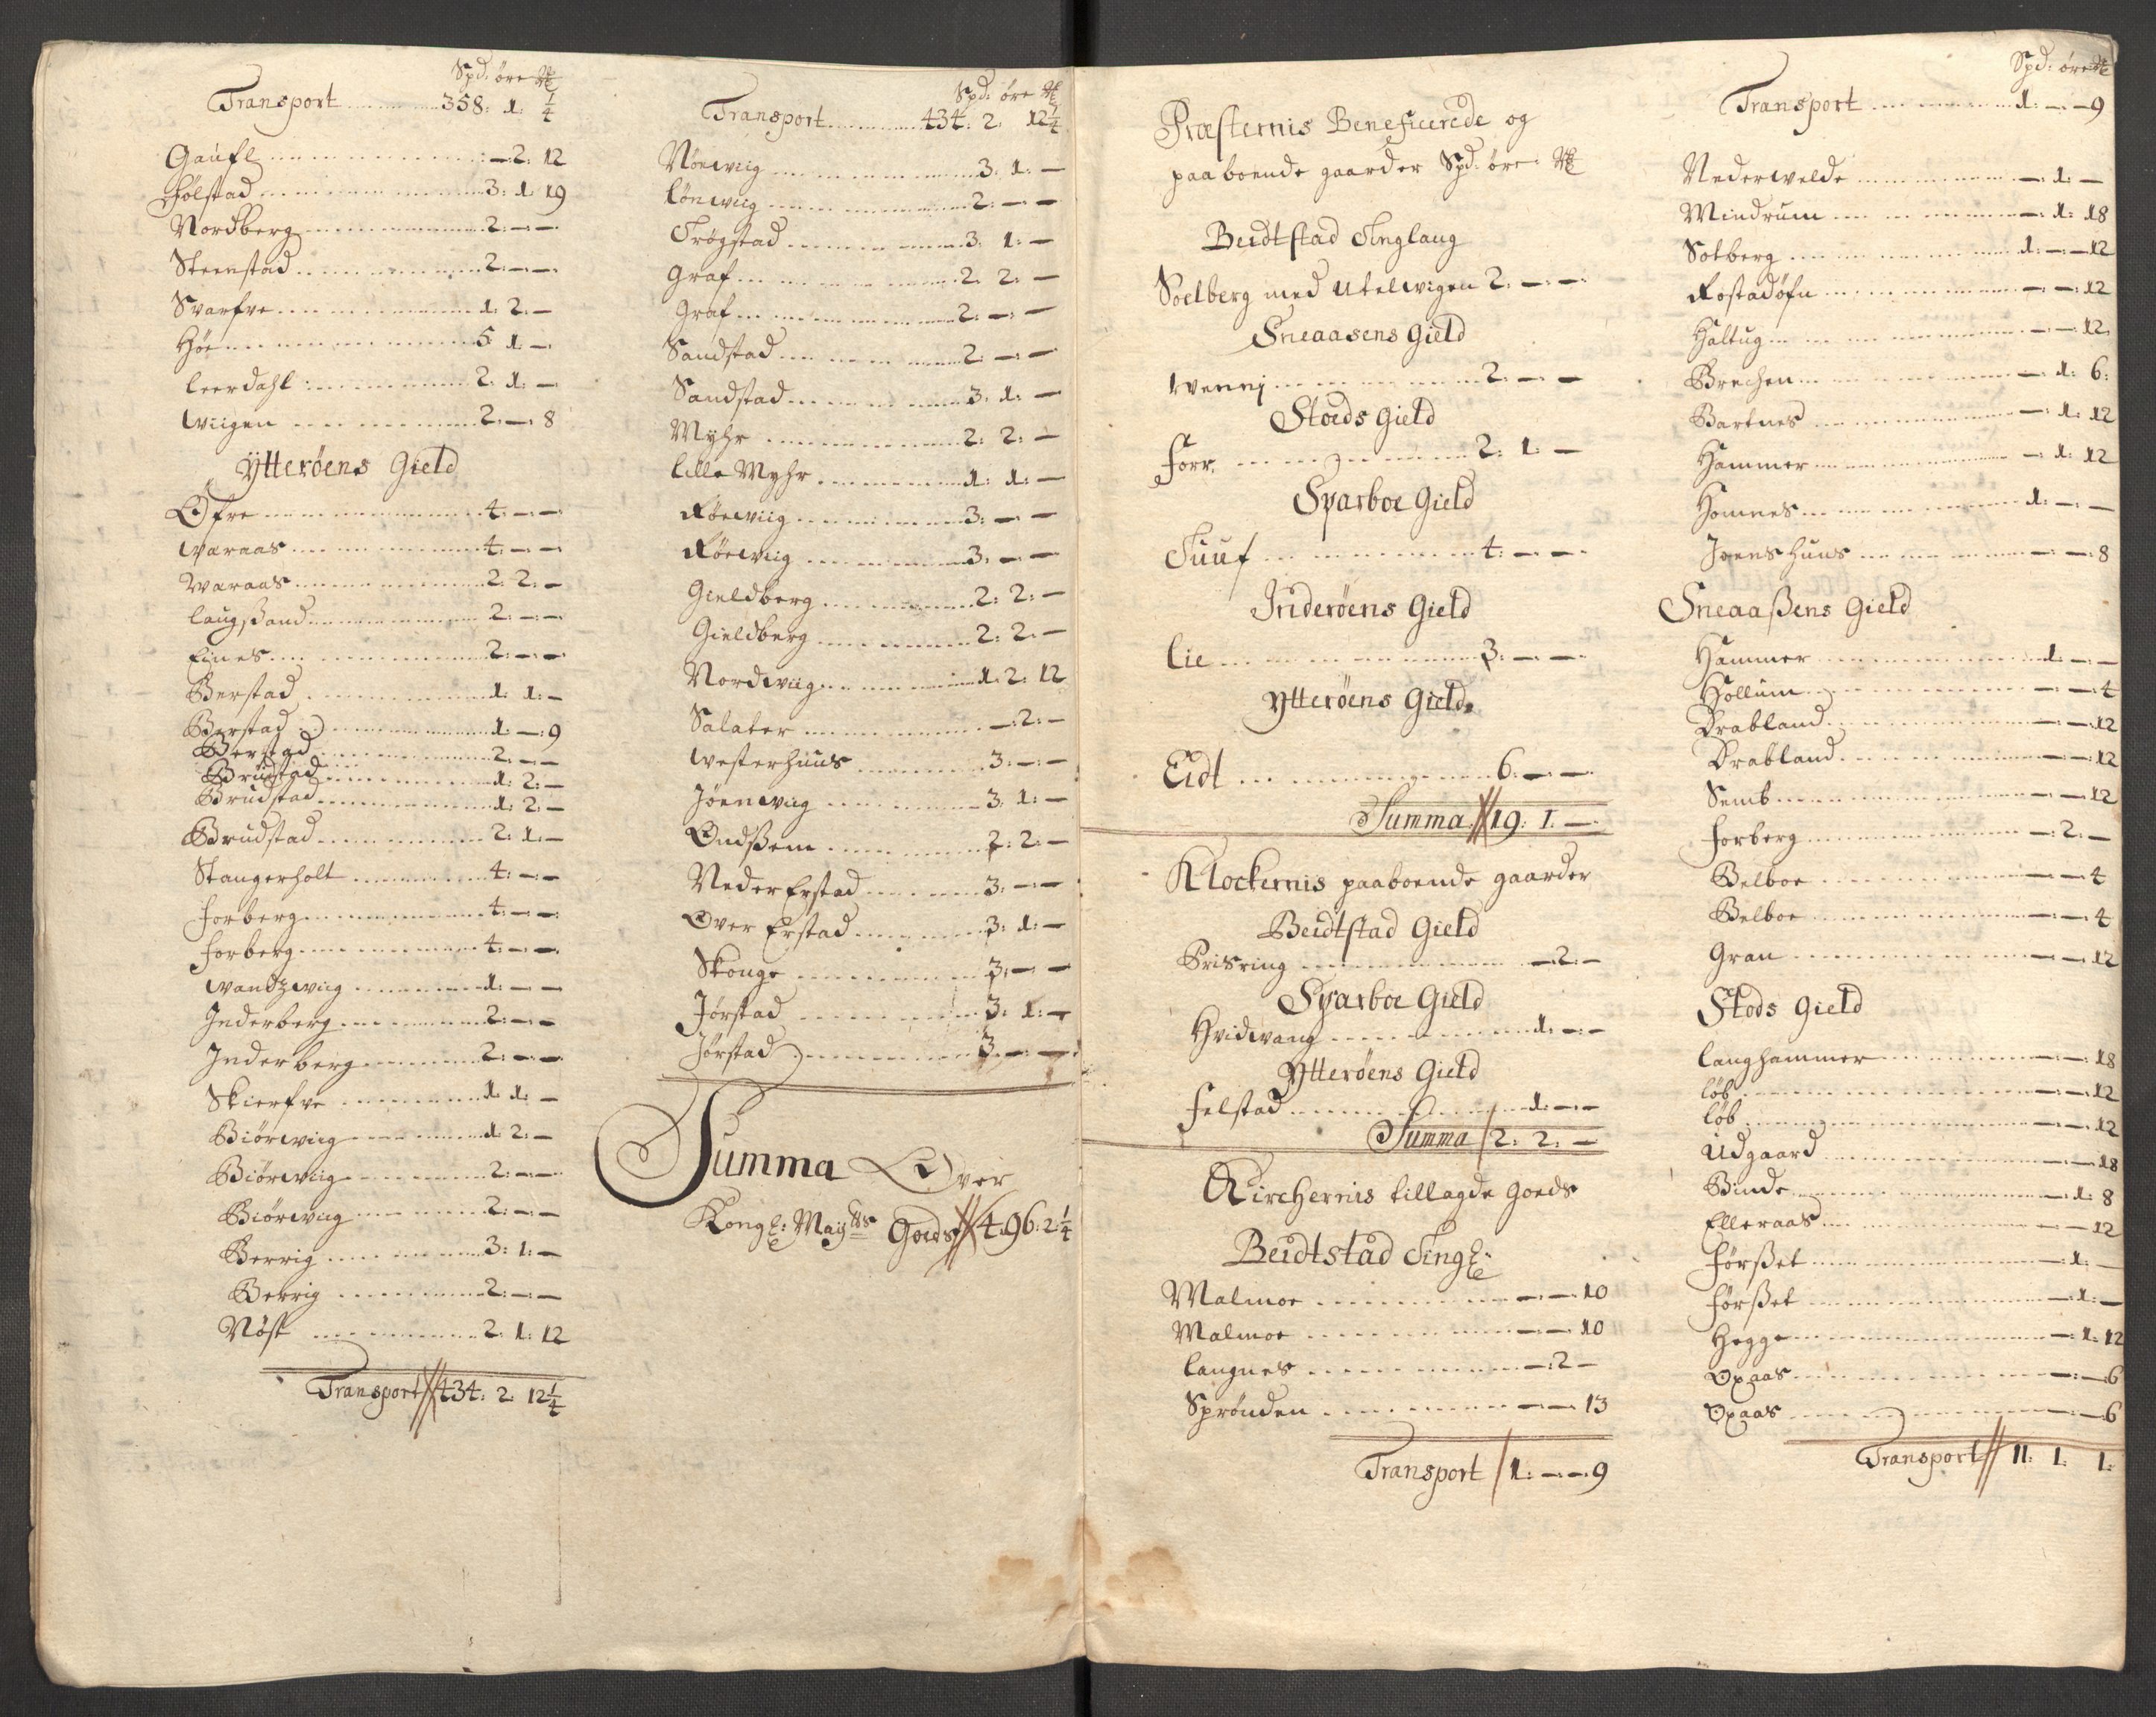 Spd: øre
Transport 358: 1: 1/4
Gaufl —2: 12
Følstad 3: 1: 19
Nordberg 2: — —
Steenstad 2: — —
Svarfve 1: 2: —
Høe 5 1 —
leerdahl 2: 1: —
wiigen 2: —: 8
Ytterøens Gield
Øfre 4: — —
waraas 4: — —
waraas 2: 2: —
laugßand 2: — —
Eines 2: — —
Berstad 1: 1: —
Berstad 1: —: 9
Berstad 2: — —
Brudstad 1: 2: —
Brudstad 1: 2: —
Brudstad 2: 1: —
Stangerholt 4: — —
forberg 4: — —
forberg 4: — —
wandzwiig 1: — —
Inderberg 2: — —
Inderberg 2: — —
Skierfve 1 1: —
Biørwiig 1 2: —
Biørwiig 2: — —
Biørwiig 2: — —
Berrig 3: 1: —
Berrig 2: — —
Nøst 2: 1: 12
Transport 434: 2: 12 1/4
Spd: øre
Transport 434: 2: 12 1/4
Nørwiig 3: 1: —
lønwiig 2: — —
Trøgstad 3: 1: —
Graf 2: 2: —
Graf 2: — —
Sandstad 2: — —
Sandstad 3: 1: —
Myhr 2: 2: —
lille Myhr 1: 1: —
Røewiig 3: — —
Røewiig 3: — —
Gieldberg 2: 2: —
Gieldberg 2: 2: —
Nordwiig 1: 2: 12
Salater —: 2: —
westerhuus 3: — —
Jøenwiig 3: 1: —
Ondßem 2: 2: —
Neder Erstad 3: — —
Over Erstad 3: 1: —
Skonge 3: — —
Jørstad 3: 1: —
Jørstad 3: — —
Summa Over
Kongl: Mayts Goeds 496: 2 1/4
Præsternis Beneficerede og
paaboende gaarder Spd: øre
Beidtstad Tinglaug
Soelberg med Utelwigen 2: — —
Sneaasens Gield
wennj 2: — —
Stods Gield
Forr 2: 1: —
Sparboe Gield
Tuuf 4: — —
Inderøens Gield
Lie 3: — —
Ytterøens Gield
Eidt 6: — —
Summa 19: 1: —
Klockernis paaboende gaarder
Beidtstad Gield
Brisring —2: —
Sparboe Gield
Hvidwang 1: — —
Ytterøens Gield
felstad 1: — —
Summa 2: 2: —
Kirchernis tillagde goeds
Beidtstad Tingl:
Malmoe — —: 10
Malmoe — —: 10
langnes —: 2 —
Sprønden — — 13
Transport 1: —: —: 9
Spd: øre
Transport 1: — —9
Nederwelde —: 1: —
Mindrum —: 1: 18
Solberg 1: — —12
Rostadøfn — —: 12
Haltug — —: 12
Brechen —: 1: 6:
Bartnes —: 1: 12
Hammer —: 1: 12
Homnes 1: — —
Joenshuus — —: 8
Sneaaßens Gield
Hammer 1: — —
Hollum — —: 4
Brabland — —12
Brabland — —: 12
Semb — —: 12
forberg —: 2: —
Belboe — —: 4
Belboe — —: 4
Gran — —: 12
Stods Gield
langhammer — —: 18
løb — —: 12
løb — —: 12
Udgaard — —18
Binde —: 1: 8
Elleraas — —12
førßet —: 1: —
førßet —: 1: —
Hegge —: 1: 12
Opaas —: —6
Opaas —: —6
Transport 11: 1: 1: